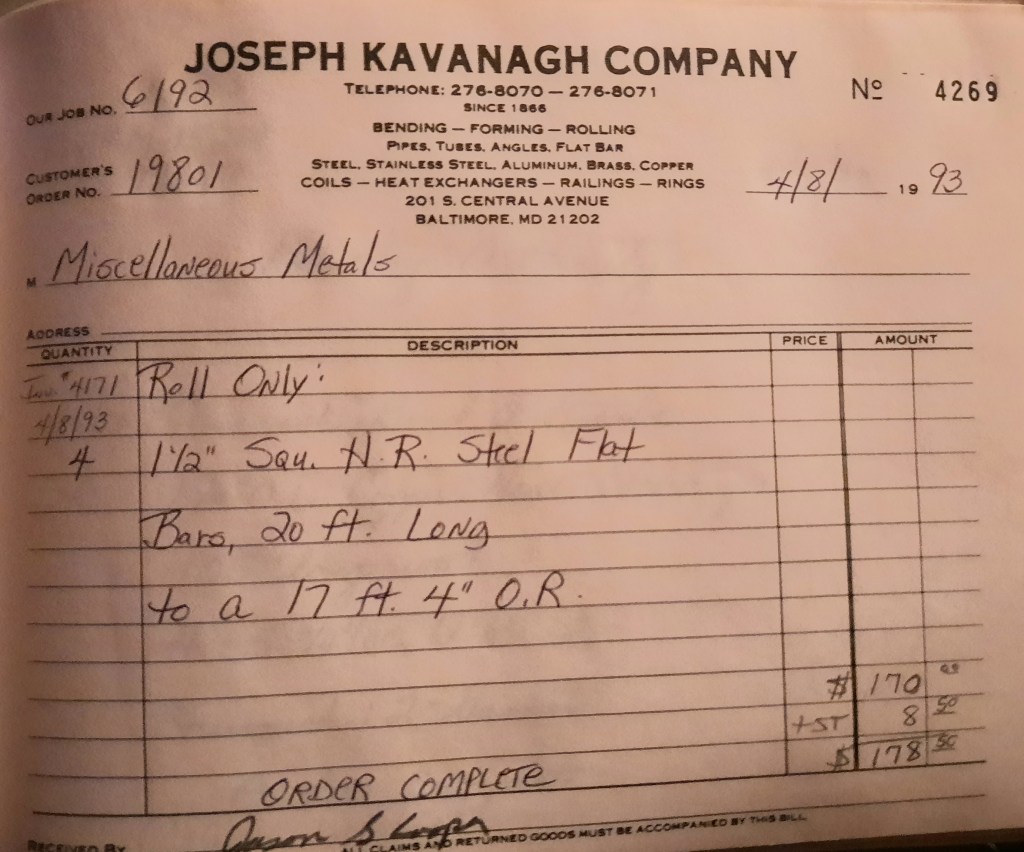 JOSEPH KAVANAGH COMPANY
OUR JOB NO. 6192
TELEPHONE: 276-8070 — 276-8071
Nº 4269
SINCE 1866
BENDING — FORMING — ROLLING
PIPES, TUBES, ANGLES, FLAT BAR
CUSTOMER'S ORDER NO. 19801
STEEL, STAINLESS STEEL, ALUMINUM, BRASS, COPPER
COILS — HEAT EXCHANGERS — RAILINGS — RINGS
4/8/ 19 93
201 S. CENTRAL AVENUE
BALTIMORE, MD 21202
M Miscellaneous Metals
ADDRESS
QUANTITY DESCRIPTION PRICE AMOUNT
Inv. #4171 Roll Only:
4/8/93
4 1 1/2" Squ. H.R. Steel Flat
Bars, 20 ft. Long
to a 17 ft. 4" O.R.
$ 170 00
+ST 8 50
$ 178 50
ORDER COMPLETE
RECEIVED BY Jason S
ALL CLAIMS AND RETURNED GOODS MUST BE ACCOMPANIED BY THIS BILL